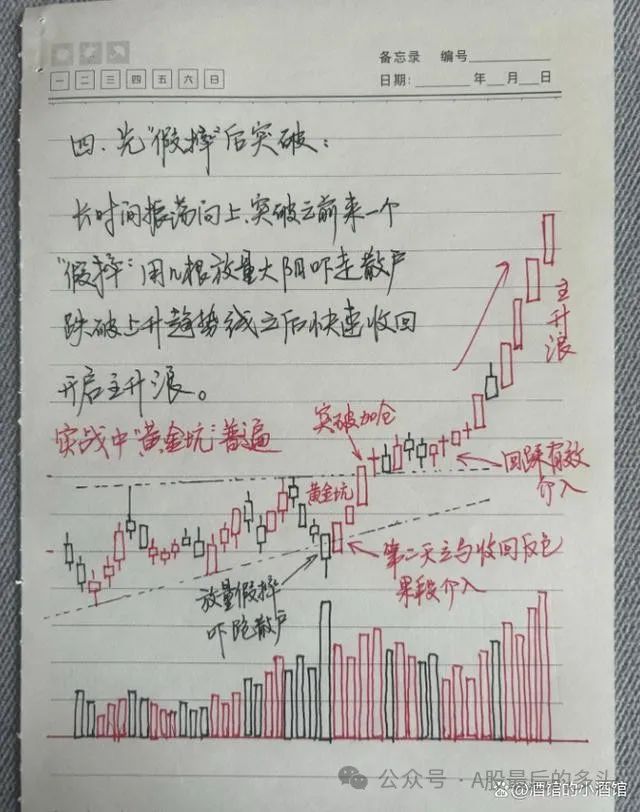 备忘录 编号
一 二 三 四 五 六 日
日期: 年 月 日
四.先“假摔”后突破:
长时间振荡向上.突破之前来一个
“假摔”用几根放量大阴吓走散户
跌破上升趋势线之后快速收回
开启主升浪。
实战中“黄金坑”普遍
主升浪
突破加仓
回踩有效
介入
黄金坑
第二天立马收回反包
果断介入
放量假摔
吓跑散户
公众号·A股最后的多头
@酒馆的小酒馆